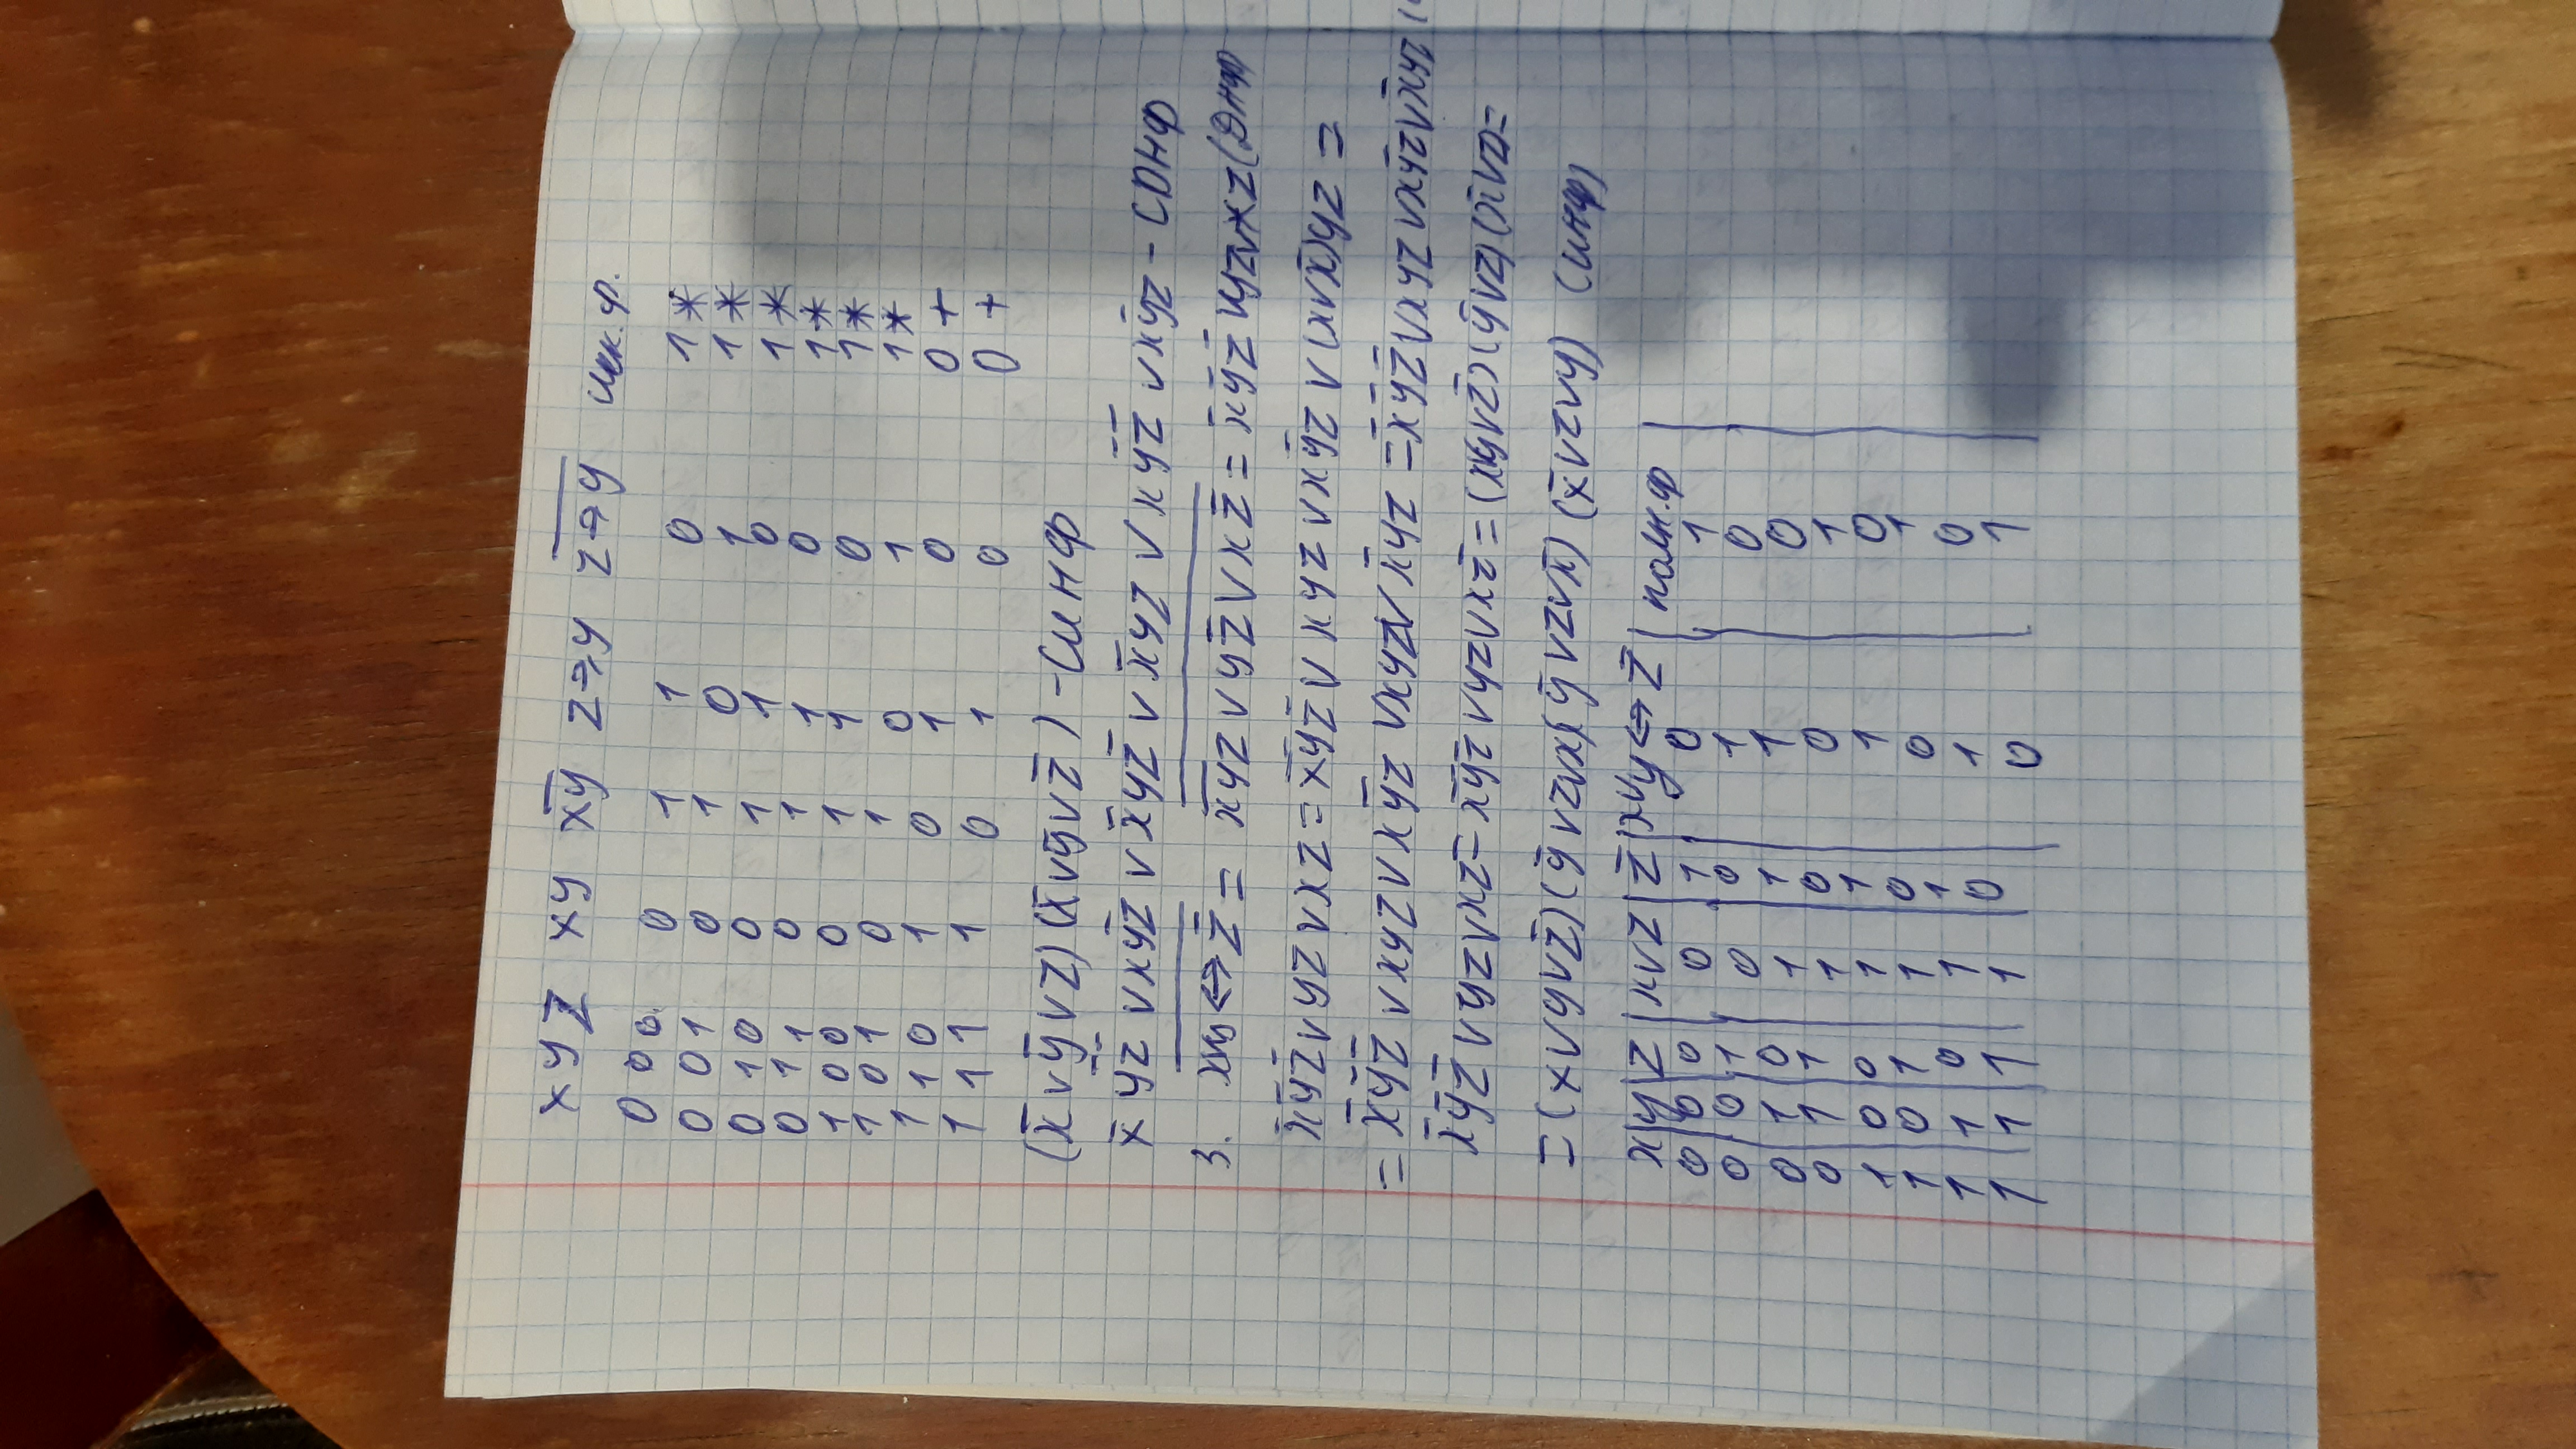 x y z xy x̅y̅ z⇒y z̅⇒̅y̅ иск. ф.
0 0 0 0 1 1 0 1 *
0 0 1 0 1 0 1 1 *
0 1 0 0 1 1 0 1 *
0 1 1 0 1 1 0 1 *
1 0 0 0 1 1 0 1 *
1 0 1 0 1 0 1 1 *
1 1 0 1 0 1 0 0 +
1 1 1 1 0 1 0 0 +
(x̅ v y̅ v z)(x̅ v y̅ v z̅) - СКНФ
x̅ y̅z̅ v xy̅z̅ v x̅yz̅ v x̅yz v xy̅z̅ v xy̅z - СДНФ
3. x̅v̅y̅⇔̅z̅ = x̅y̅z v yz̅ v xz̅ = x̅y̅z̅ v yz v xz (ДНФ)
x̅y̅z̅ v yz v xz = x̅y̅z̅ v xyz v xy̅z v (x v x̅)yz =
= x̅y̅z̅ v xyz v xy̅z v xyz v x̅yz = x̅y̅z̅ v xyz v xy̅z v x̅yz (
x̅y̅z̅ v yz v xz = x̅y̅z̅ v yz v xz̅ = (xyvz̅)(y̅vz)(x̅vz) =
= (x v y v z̅)(y̅ v z v x)(y̅ v z v x̅) (x̅ v z v y) (КНФ)
x | y | z | x v z | z̅ | x v y ⇔ z̅ | полн. ф |
0 0 0 0 1 0 1
0 0 1 0 0 1 0
0 1 0 1 1 1 0
0 1 1 1 0 0 1
1 0 0 1 1 1 0
1 0 1 1 0 0 1
1 1 0 1 1 1 0
1 1 1 1 0 0 1